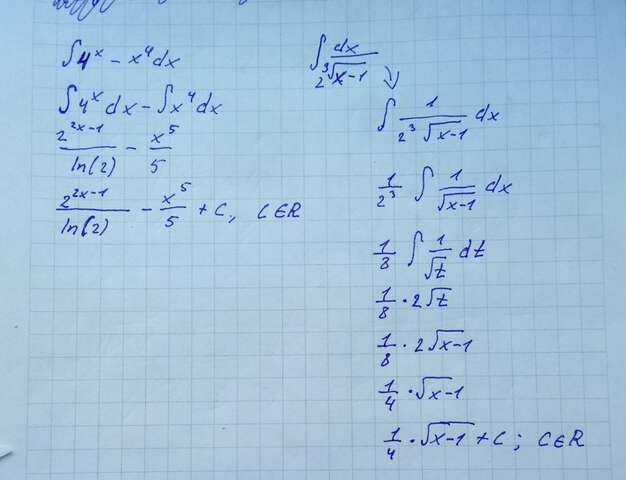 ∫4ˣ - x⁴dx
∫4ˣdx - ∫x⁴dx
2²ˣ⁻¹/ln(2) - x⁵/5
2²ˣ⁻¹/ln(2) - x⁵/5 + C, C∈R
∫dx/2³√x-1
∫ 1/2³√x-1 dx
1/2³ ∫ 1/√x-1 dx
1/8 ∫ 1/√t dt
1/8 · 2√t
1/8 · 2√x-1
1/4 · √x-1
1/4 · √x-1 + C; C∈R